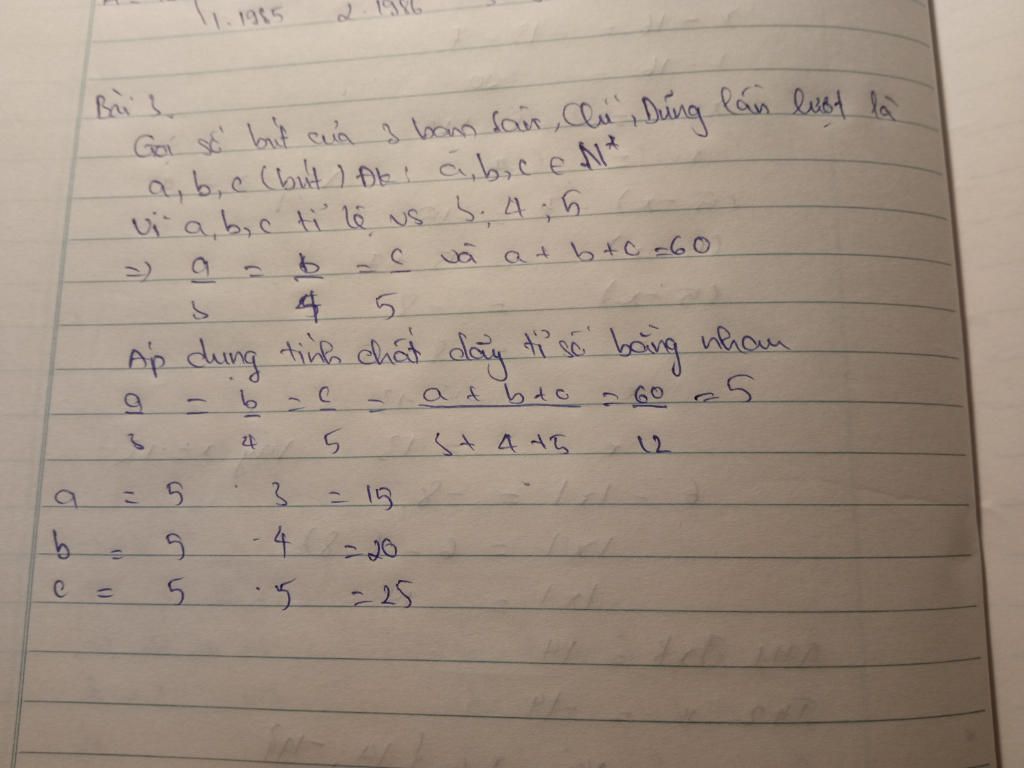 1.1985 2.1986
Bài 3.
Gọi số bút của 3 bạn , , Dũng lần lượt là
a, b, c (bút) Đk: a, b, c ∈ N*
Vì a, b, c tỉ lệ vs 3; 4; 5
=> a/3 = b/4 = c/5 và a + b + c = 60
Áp dụng tính chất dãy tỉ số bằng nham
a/3 = b/4 = c/5 = a + b + c/3 + 4 + 5 = 60/12 = 5
a = 5 · 3 = 15
b = 5 · 4 = 20
c = 5 · 5 = 25